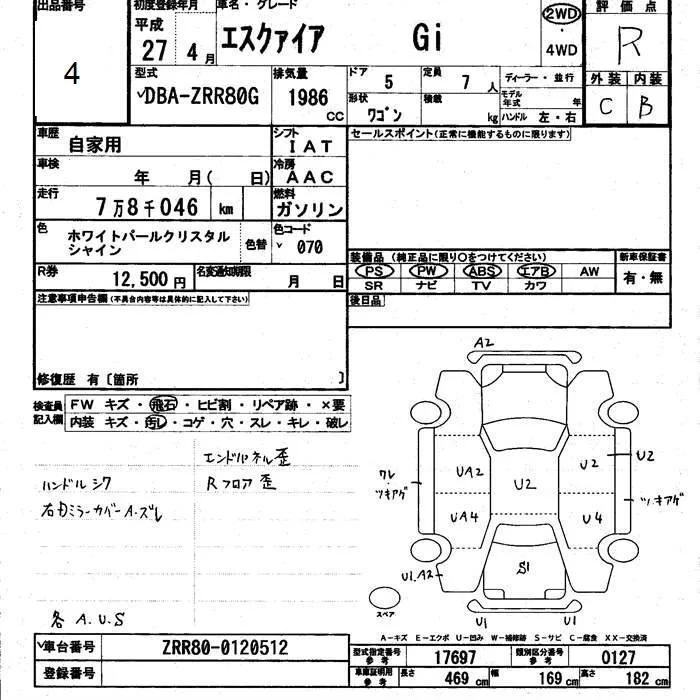 出品番号
4
初度登録年月
平成
27 4 月
車名・グレード
エスクァイア Gi
2WD
・
4WD
評価点
R
外装 内装
C B
型式
DBA-ZRR80G
排気量
1986 CC
ドア 5
定員 7 人
ディーラー・並行
形状 ワゴン
積載 kg
モデル年式 年
ハンドル 左・右
車歴 自家用
シフト IAT
車検 年 月( 日)
冷房 AAC
走行 7万8千046 km
燃料 ガソリン
色 ホワイトパールクリスタルシャイン
色替
色コード 070
R券 12,500 円
名変通知期限 月 日
セールスポイント(正常に機能するものに限ります)
装備品(純正品に限り○をつけてください)
新車保証書
PS PW ABS エアB AW
有・無
SR ナビ TV カワ
後日品
注意事項申告欄(不具合内容等は具体的に記入して下さい)
修復歴 有〔箇所 〕
検査員記入欄
FW キズ・飛石・ヒビ割・リペア跡・×要
内装 キズ・汚レ・コゲ・穴・スレ・キレ・破レ
エンドパネル歪
ハンドルシワ Rフロア歪
右ドミラーカバーA.ズレ
各 A.U.S
A2
U2
UA2 U2
U2
ワレ
ツキアゲ
ツキアゲ
UA4 U4
S1
U1.A2
スペア
U1 U1
A-キズ E-エクボ U-凹み W-補修跡 S-サビ C-腐食 XX-交換済
車台番号 ZRR80-0120512
登録番号
型式指定番号 参考 17697
類別区分番号 参考 0127
車庫証明用 参考
長さ 469 cm
幅 169 cm
高さ 182 cm